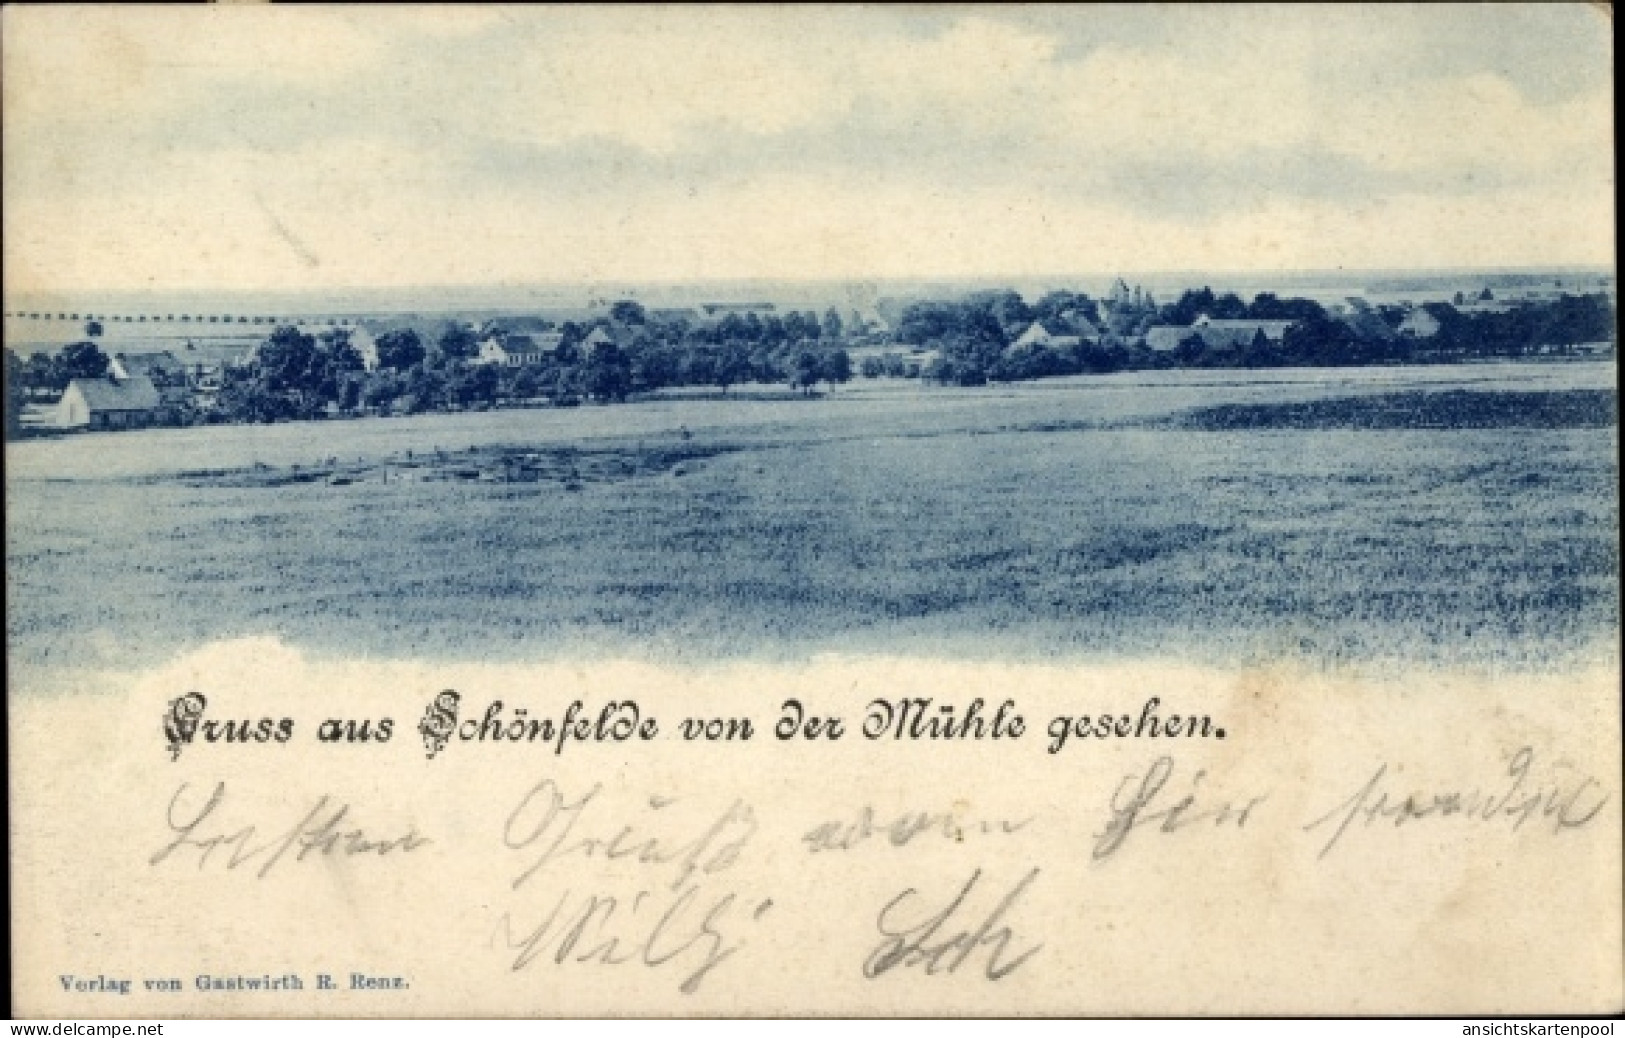 Gruss aus Schönfelde von der Mühle gesehen.
Besten Gruß von Hier sendet
Willy Sch
Verlag von Gastwirth R. Renz.
delcampe.net
ansichtskartenpool